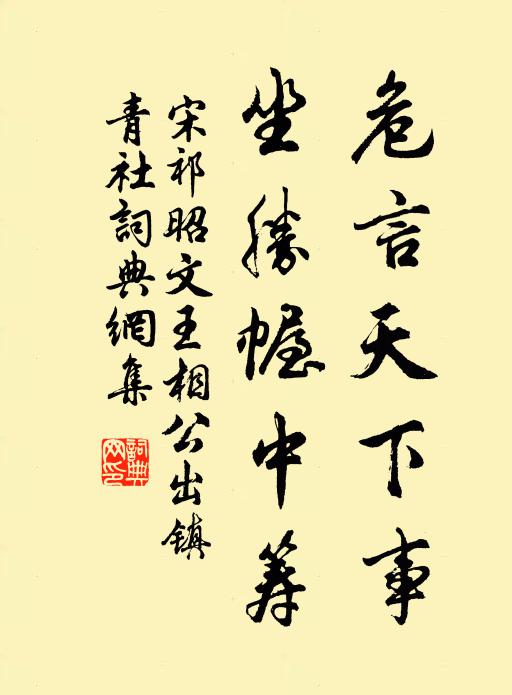 危言天下事
坐勝幄中筹
宋祁昭文王相公出镇
青社詞典網集
詞典
网印